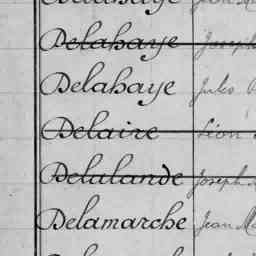 Delahaye Joseph
Delahaye Jules
Delaire Léon
Delalande Joseph
Delamarche Jean